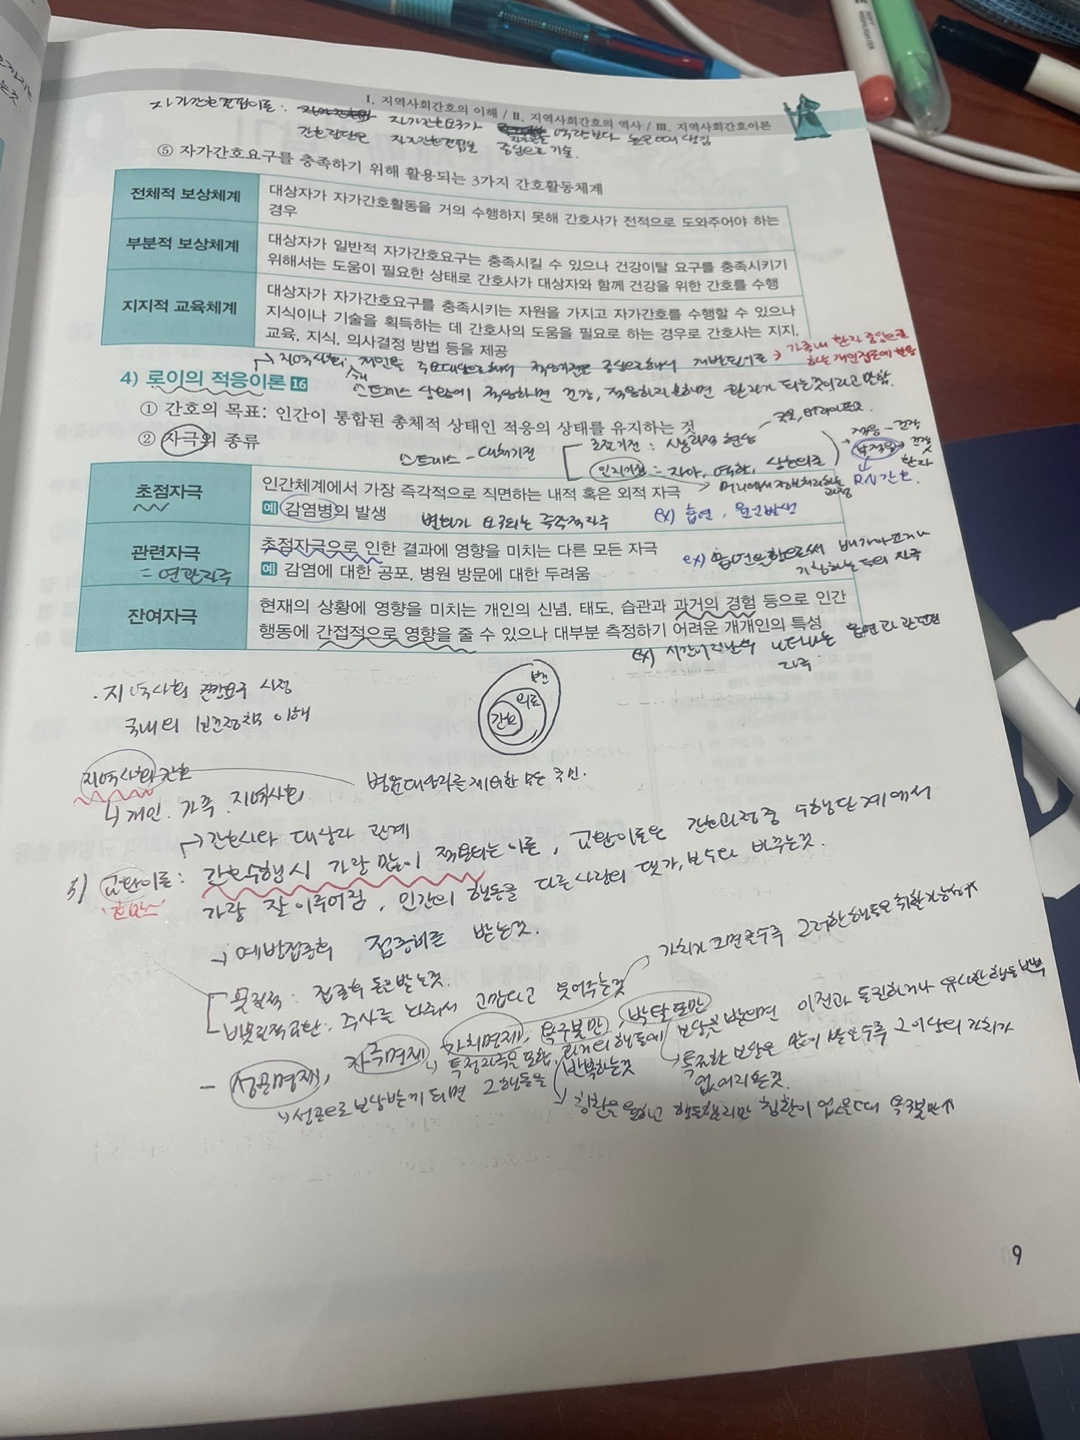 Ⅰ. 지역사회간호의 이해 / Ⅱ. 지역사회간호의 역사 / Ⅲ. 지역사회간호이론
자가간호결핍이론: 자가간호요구가 역량보다 높은 때 생김
간호결핍은 자가간호결핍을 중심으로 기술.
⑤ 자가간호요구를 충족하기 위해 활용되는 3가지 간호활동체계
전체적 보상체계
대상자가 자가간호활동을 거의 수행하지 못해 간호사가 전적으로 도와주어야 하는
경우
부분적 보상체계
대상자가 일반적 자가간호요구는 충족시킬 수 있으나 건강이탈 요구를 충족시키기
위해서는 도움이 필요한 상태로 간호사가 대상자와 함께 건강을 위한 간호를 수행
지지적 교육체계
대상자가 자가간호요구를 충족시키는 자원을 가지고 자가간호를 수행할 수 있으나
지식이나 기술을 획득하는 데 간호사의 도움을 필요로 하는 경우로 간호사는 지지,
교육, 지식, 의사결정 방법 등을 제공
→ 가족내 환자 중심으로
하는 개인접근에 활용
4) 로이의 적응이론 16
스트레스 상황에 적응하면 건강, 적응하지 못하면 환자가 되는것이라고 말함.
① 간호의 목표: 인간이 통합된 총체적 상태인 적응의 상태를 유지하는 것
② 자극의 종류
스트레스 - 대처기전
조절기전 : 생리적 현상
인지기전 = 자아, 역할, 상호의존
적응 - 건강
부적응 → 건강
환자
RN간호.
초점자극
인간체계에서 가장 즉각적으로 직면하는 내적 혹은 외적 자극
예 감염병의 발생
변화가 요구되는 즉각적자극
ex) 흡연, 발생
관련자극
= 연관자극
초점자극으로 인한 결과에 영향을 미치는 다른 모든 자극
예 감염에 대한 공포, 병원 방문에 대한 두려움
잔여자극
현재의 상황에 영향을 미치는 개인의 신념, 태도, 습관과 과거의 경험 등으로 인간
행동에 간접적으로 영향을 줄 수 있으나 대부분 측정하기 어려운 개개인의 특성
ex) 시간이지난후 나타나는 흡연과 관련된
자극.
· 지역사회 건강요구 사정
국내의 보건정책 이해
의료
간호
지역사회 간호
병원대상자를 제외한 모든 국민.
↳ 개인. 가족. 지역사회
→ 간호사와 대상자 관계
5) 교환이론: 간호수행시 가장 많이 적용되는 이론, 교환이론은 간호과정중 수행단계에서
'호만스' 가장 잘 이루어짐, 인간의 행동을 다른사람의 댓가, 보수와 바꾸는것.
→ 예방접종후 접종비를 받는것.
물질적 : 접종후 돈을받는것.
비물질적교환 : 주사를 놔줘서 고맙다고 웃어주는것
가치가 크면클수록 그러한 행동을 취할 가능성↑
- 성공명제, 자극명제, 가치명제, 욕구불만, 박탈포만
↳ 성공으로 보상받는게 되면 그 행동을 반복하는것
특정자극을 포함, 과거의 행동에 보상을 받으면 이전과 동일하거나 유사한행동 반복
특정한 보상을 많이 받을수록 그이상의 가치가
없어지는것.
→ 칭찬을 원하고 행동했지만 칭찬이 없을때 욕구불만↑
9